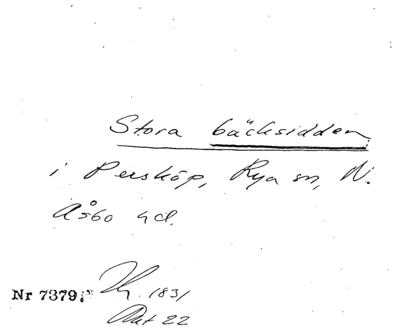 Stora bäcksidden
i Persköp, Rya sn, N.
Åsbo hd.
Nr 7379. 1831
Akt 22